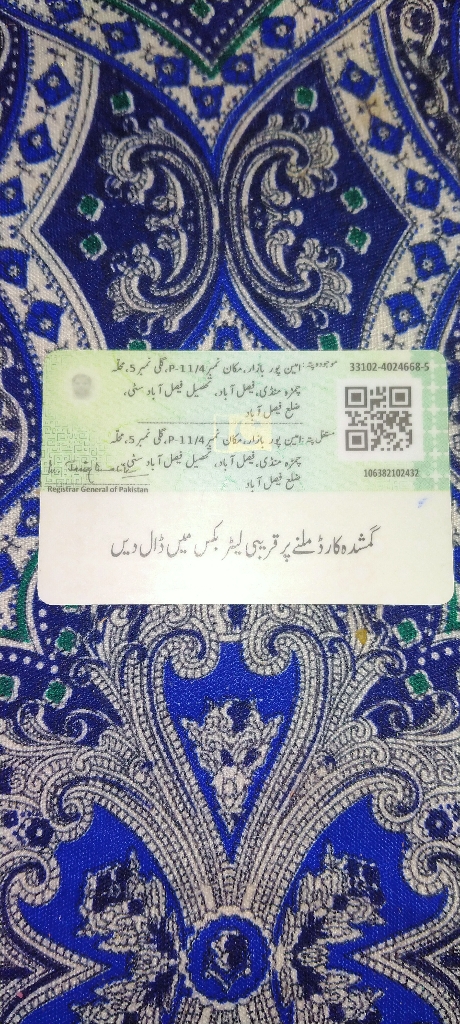 33102-4024668-5
موجودہ پتہ: امین پور بازار، مکان نمبر P-11/4، گلی نمبر 5، محلہ
چمڑہ منڈی، فیصل آباد، تحصیل فیصل آباد سٹی،
ضلع فیصل آباد
مستقل پتہ: امین پور بازار، مکان نمبر P-11/4، گلی نمبر 5، محلہ
چمڑہ منڈی، فیصل آباد، تحصیل فیصل آباد سٹی،
ضلع فیصل آباد
106382102432
Registrar General of Pakistan
گمشدہ کارڈ ملنے پر قریبی لیٹر بکس میں ڈال دیں